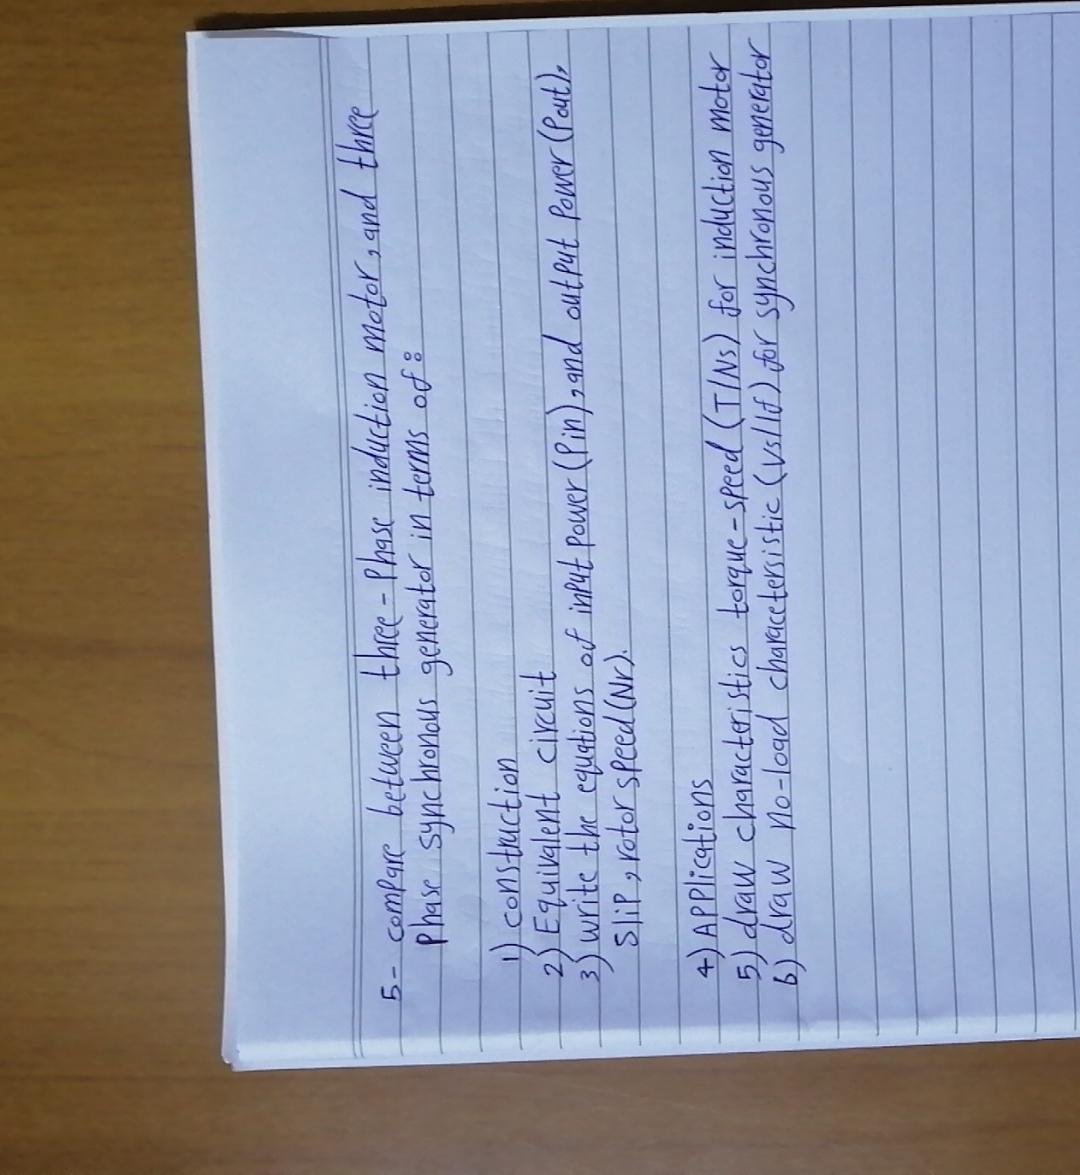 5- compare between three-Phase induction motor, and three
Phase synchronous generator in terms of:
1) construction
2) Equivalent circuit
3) write the equations of input power (Pin), and output Power (Pout),
Slip, rotor speed (Nr).
4) Applications
5) draw characteristics torque-speed (T/Ns) for induction motor
6) draw no-load characetersistic (Vs/If) for synchronous generator